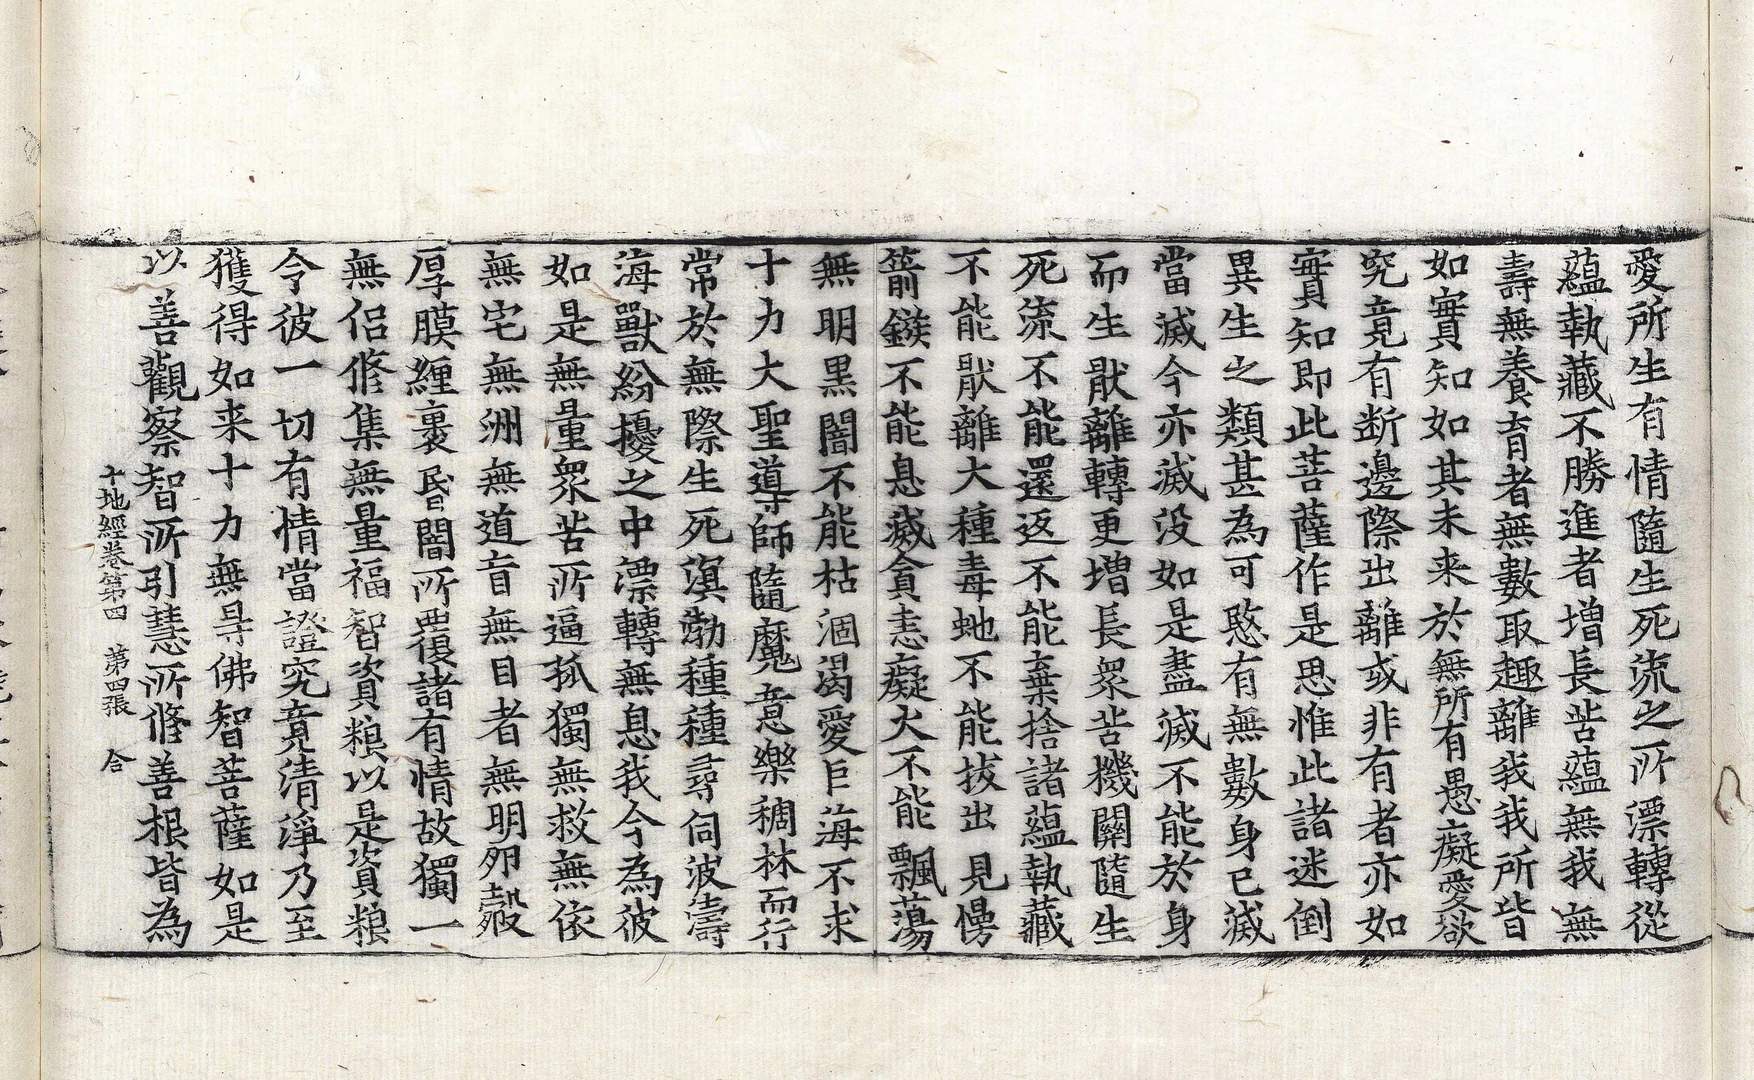 愛所生有情隨生死流之所漂轉從
蘊執藏不勝進者增長苦蘊無我無
壽無養育者無數取趣離我我所皆
如實知如其未来於無所有愚癡愛欲
究竟有断邊際出離或非有者亦如
實知即此菩薩作是思惟此諸迷倒
異生之類甚為可愍有無數身已滅
當滅今亦滅没如是盡滅不能於身
而生猒離轉更增長衆苦機關隨生
死流不能還返不能棄捨諸蘊執藏
不能猒離大種毒虵不能拔出見慢
箭鏃不能息滅貪恚癡火不能飄蕩
無明黑闇不能枯涸渴愛巨海不求
十力大聖導師隨魔意樂稠林而行
常於無際生死溟渤種種尋伺波濤
海獸紛擾之中漂轉無息我今為彼
如是無量衆苦所逼孤獨無救無依
無宅無洲無道盲無目者無明夘㲉
厚膜纏裹昬闇所覆諸有情故獨一
無侣修集無量福智資粮以是資粮
令彼一切有情當證究竟清淨乃至
獲得如来十力無㝵佛智菩薩如是
以善觀察智所引慧所修善根皆為
十地經卷第四　第四張　合